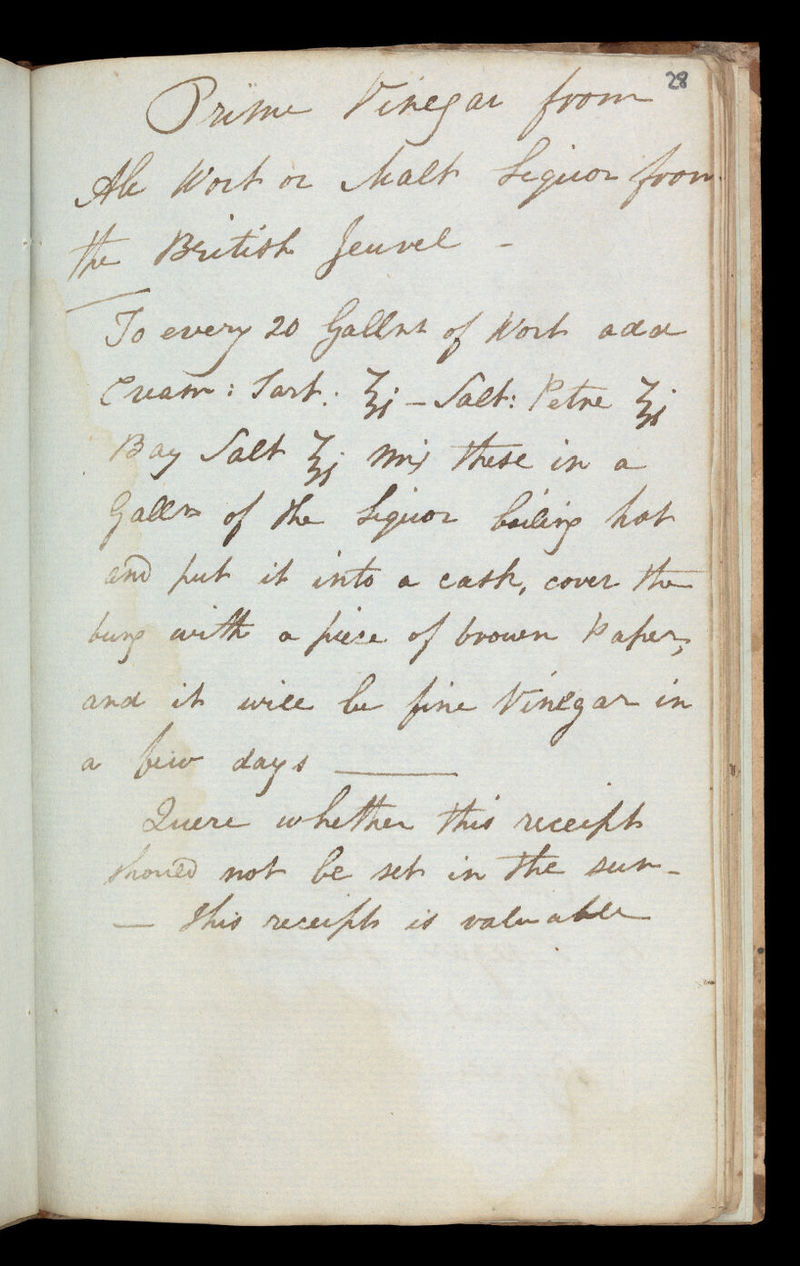 28
Prime Vinegar from
Ale Wort or Malt Liquor from
the British Jewel -
To every 20 Gallns of Wort add
Cream: Tart: ℥j - Salt: Petre ℥j
Bay Salt ℥j mix these in a
Galln of the Liquor boiling hot
and put it into a cask, cover the
bung with a piece of brown Paper,
and it will be fine Vinegar in
a few days ———
Quere whether this receipt
should not be set in the sun -
— this receipt is valuable